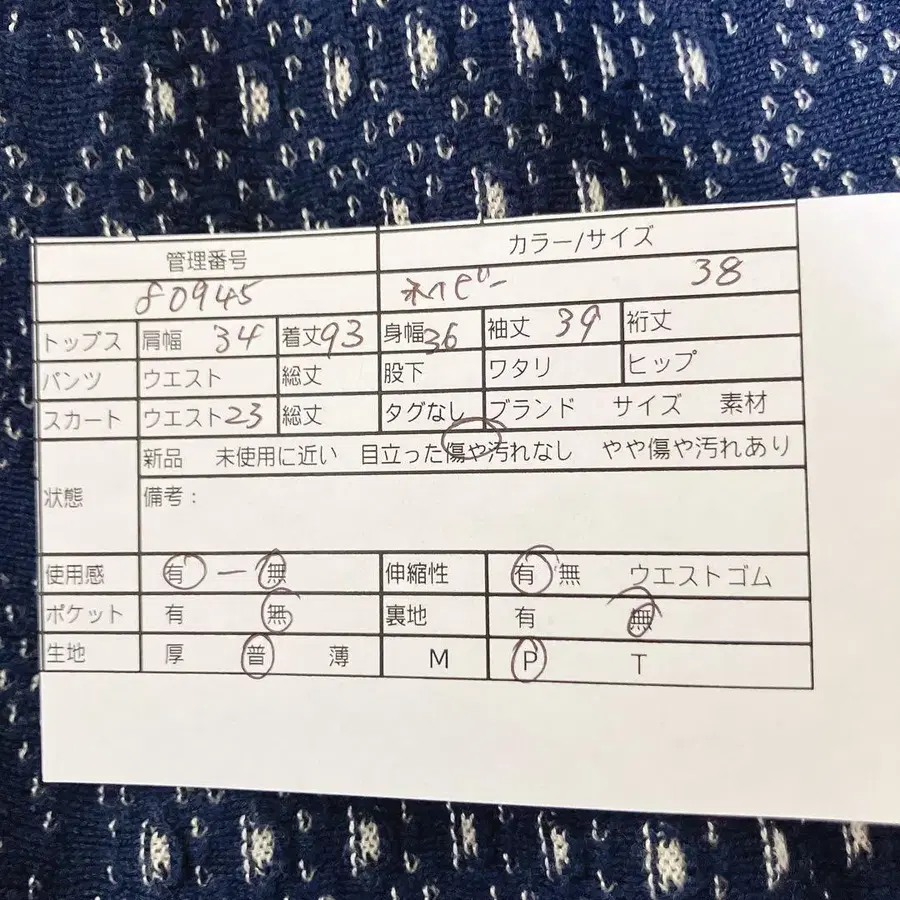 管理番号 カラー/サイズ
80945 ネイビー 38
トップス 肩幅 34 着丈93 身幅36 袖丈 39 裄丈
パンツ ウエスト 総丈 股下 ワタリ ヒップ
スカート ウエスト23 総丈 タグなし ブランド サイズ 素材
状態 新品 未使用に近い 目立った傷や汚れなし やや傷や汚れあり
備考:
使用感 有 ー 無 伸縮性 有 無 ウエストゴム
ポケット 有 無 裏地 有 無
生地 厚 普 薄 M P T